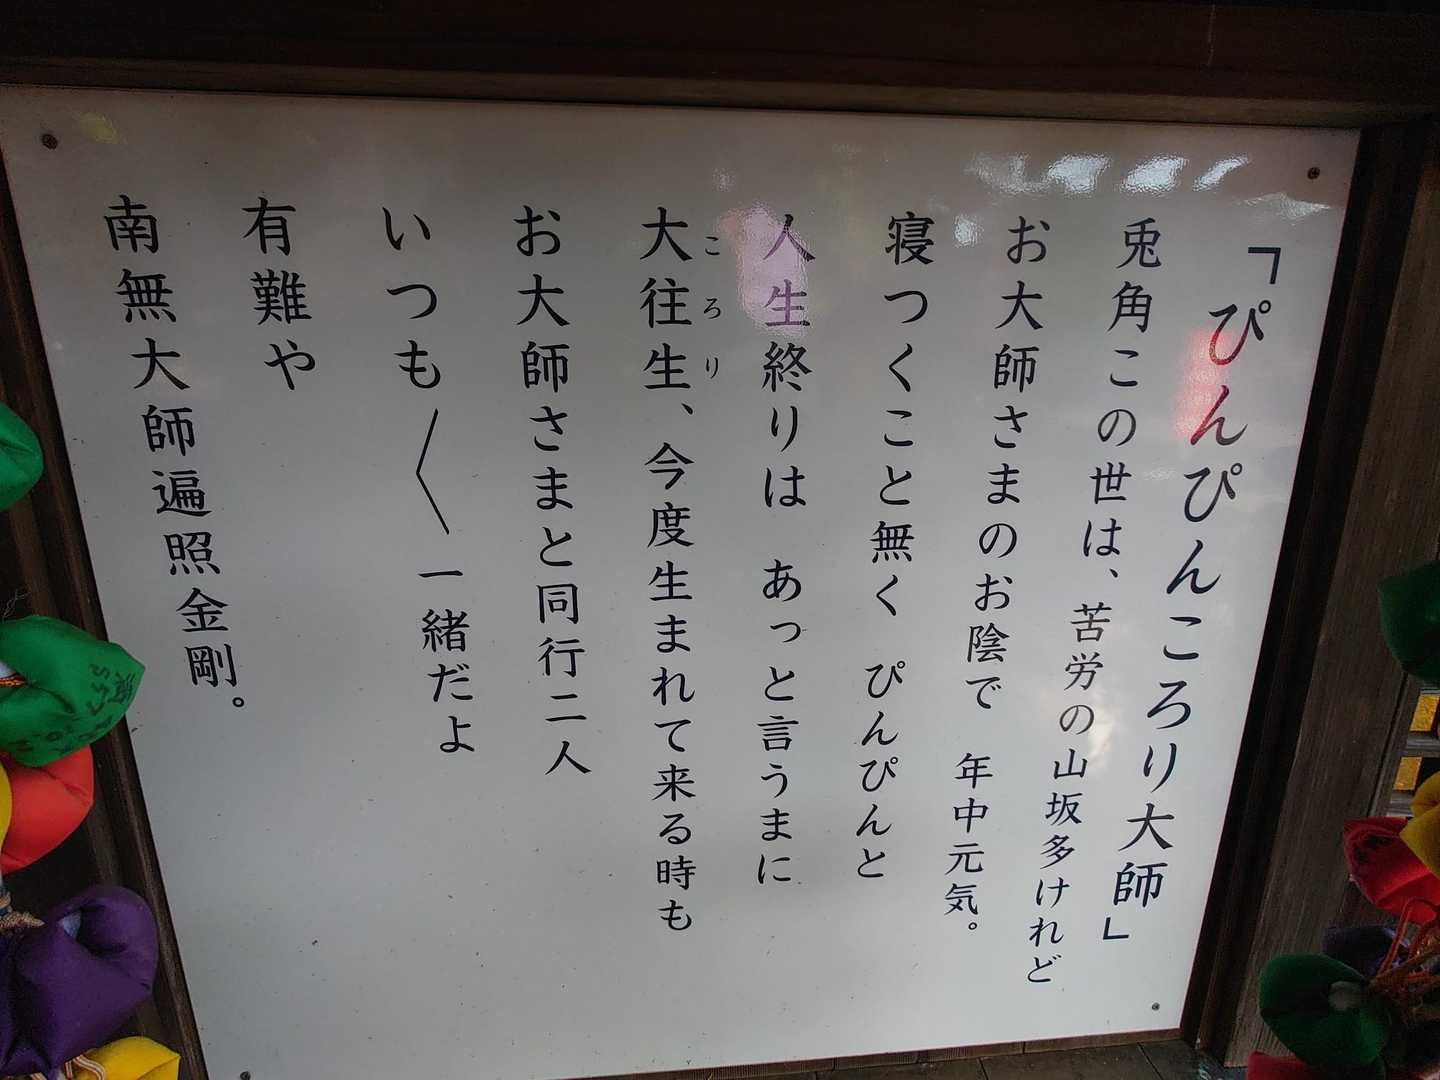 「ぴんぴんころり大師」
兎角この世は、苦労の山坂多けれど
お大師さまのお陰で　年中元気。
寝つくこと無く　ぴんぴんと
人生終りは　あっと言うまに
大往生、今度生まれて来る時も
ころり
お大師さまと同行二人
いつも〱一緒だよ
有難や
南無大師遍照金剛。